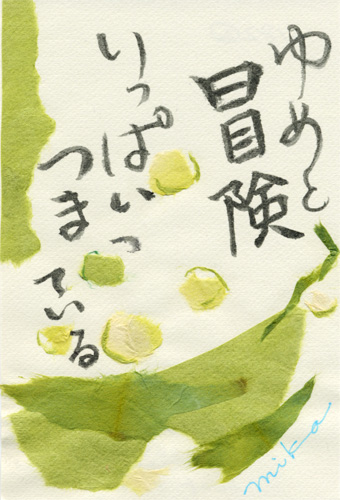 ゆめと
冒険
いっぱいっ
つまっ
ている
mika